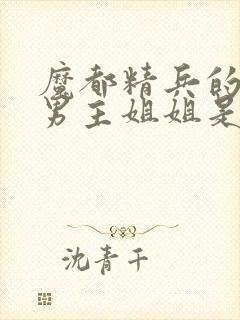 魔都精兵的
男主姐姐是
沈青千